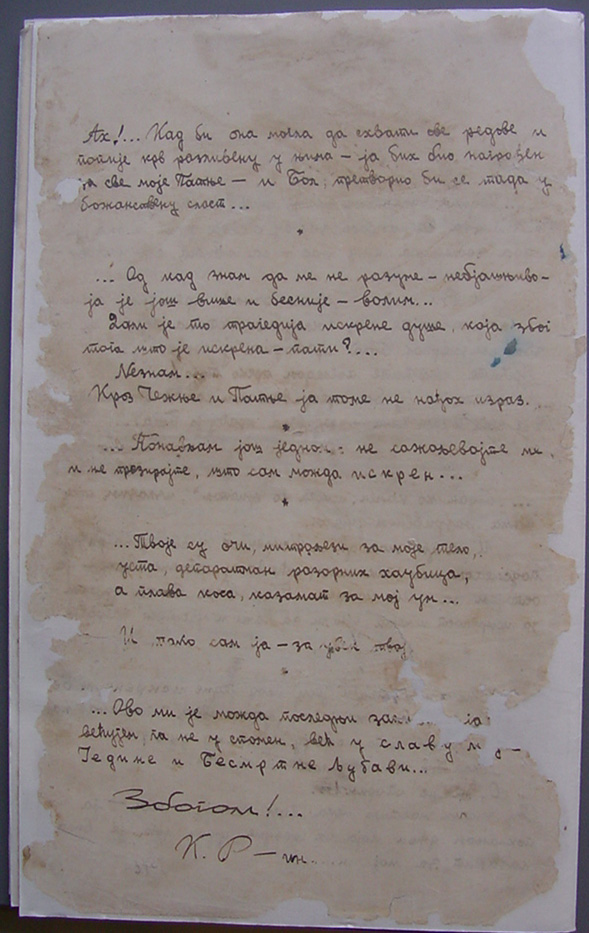 Ах!... Кад би она могла да схвати ове редове и
попије крв разливену у њима – ја бих био награђен
за све моје Патње – и Бол претворио би се тада у
божанствену сласт...
*
... Од кад знам да ме не разуме – необјашњиво –
ја је још више и бесније – волим...
Дали је то трагедија искрене душе, која због
тога што је искрена – пати?...
Незнам...
Кроз Чежње и Патње ја томе не нађох израз.
*
... Понављам још једном: не сажаљевајте ме,
и не презирајте, што сам можда искрен...
*
... Твоје су очи, митраљези за моје тело,
уста, депаратман разорних хаубица,
а плава коса, казамат за мој ум...
И тако сам ја – за увек твој
*
... Ово ми је можда последњи
већ у славу
Једине и Бесмртне Љубави...
Збогом!...
К. Р – ин...